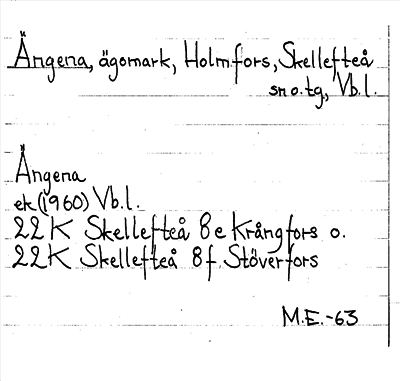 Ängena, ägomark, Holmfors, Skellefteå
sn o. tg, Vb.l.
Ängena
ek(1960) Vb.l.
22 K Skellefteå 8e Krångfors o.
22K Skellefteå 8f Stöverfors
M.E.-63